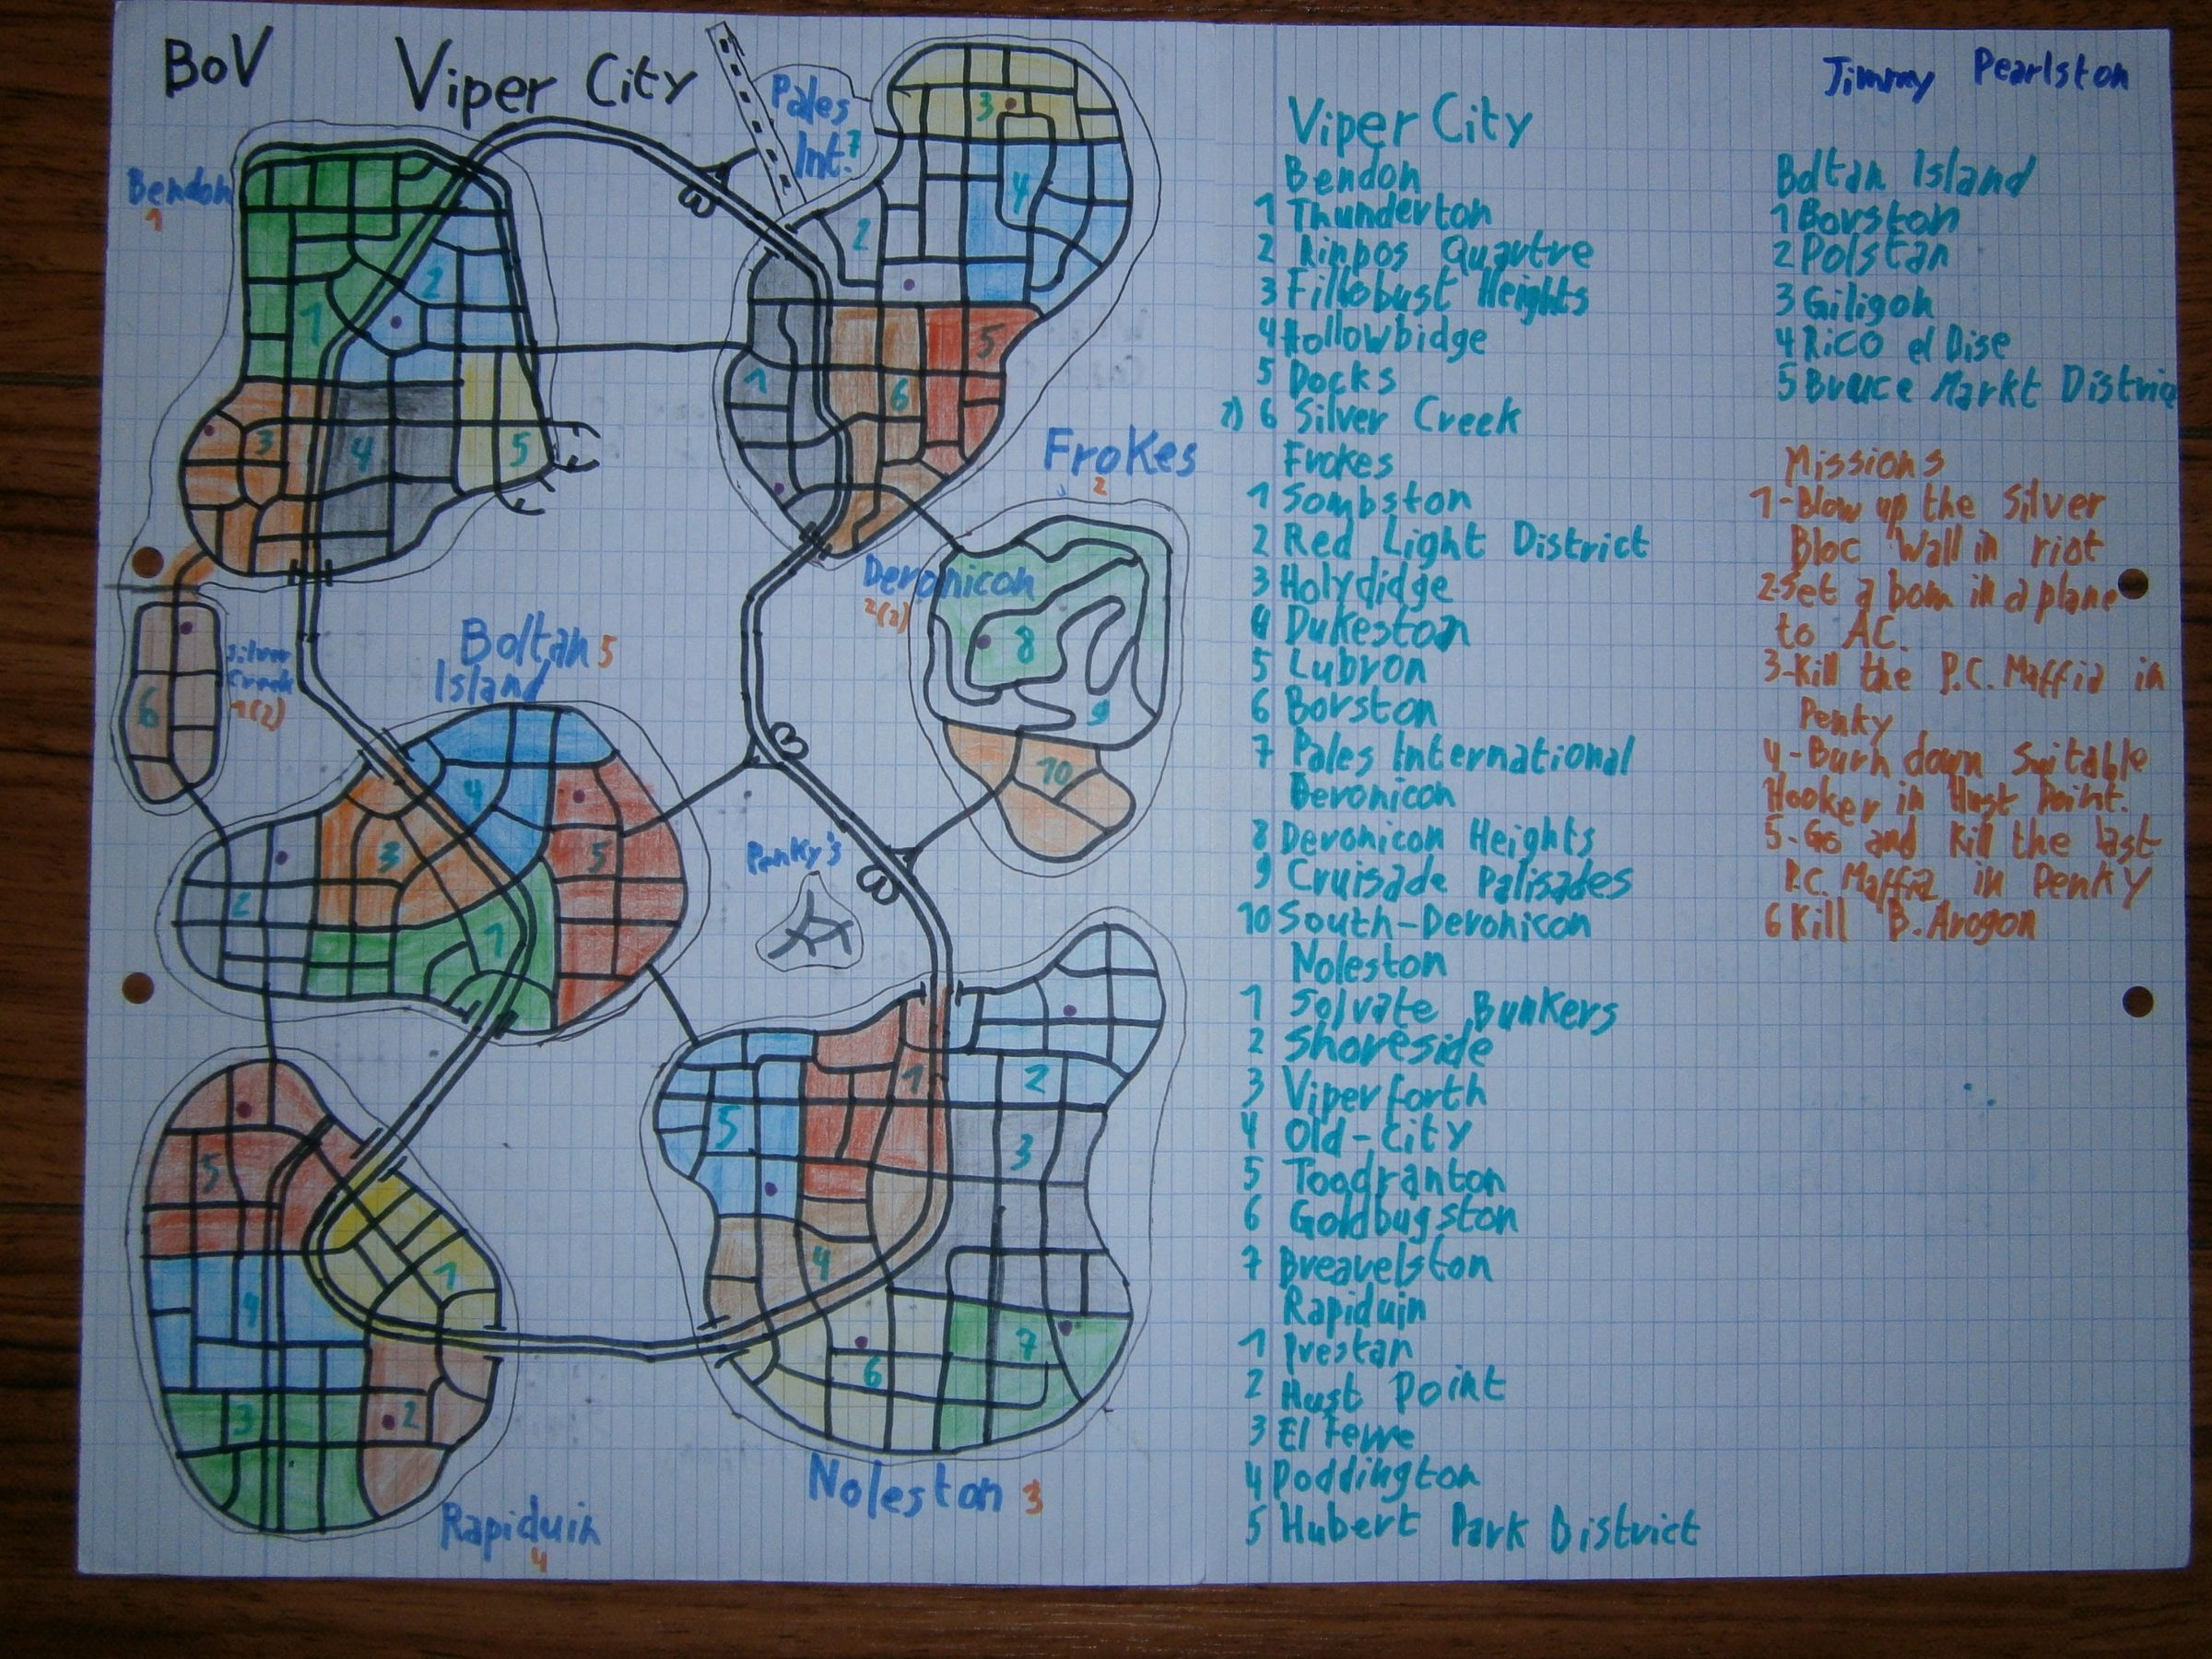 BoV
Viper City
Pales
Int.
7
Bendon
1
1
2
3
4
5
6
Silver
Creek
1(2)
1
2
3
4
5
6
Frokes
2
Deronicon
2(2)
8
9
10
Boltan 5
Island
1
2
3
4
5
Penky's
1
2
3
4
5
6
7
Noleston 3
1
2
3
4
5
Rapiduin
4
Viper City
Bendon
1 Thunderton
2 Rinpos Quartre
3 Fillobust Heights
4 Hollowbidge
5 Docks
2) 6 Silver Creek
Frokes
1 Sombston
2 Red Light District
3 Holydidge
4 Dukeston
5 Lubron
6 Borston
7 Pales International
Deronicon
8 Deronicon Heights
9 Cruisade Palisades
10 South-Deronicon
Noleston
1 Solvate Bunkers
2 Shoreside
3 Viperforth
4 Old-City
5 Toadranton
6 Goldbugston
7 Breavelston
Rapiduin
1 Prestan
2 Hust Point
3 El Ferre
4 Poddington
5 Hubert Park District
Jimmy Pearlston
Boltan Island
1 Borston
2 Polstan
3 Giligon
4 Rico el Dise
5 Bruce Markt Distric
Missions
1-Blow up the Silver
Bloc Wall in riot
2-Set a bom in a plane
to AC.
3-Kill the P.C. Maffia in
Penky
4-Burn down Suitable
Hooker in Hust Point.
5-Go and Kill the last
P.C. Maffia in Penky
6 Kill B. Arogon